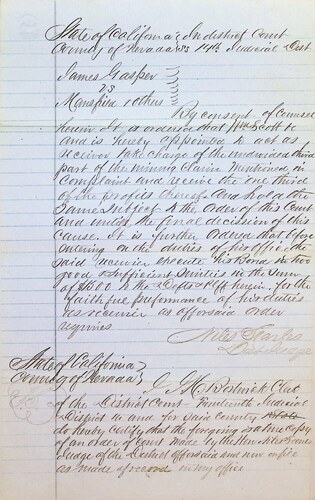 State of California } In district Court
County of Nevada } ss 14th Judicial Dist
James Gasper
vs
Mansfield & others
By consent of Counsel
herein It is ordered that Wm Scott be
and is hereby appointed to act as
receiver take charge of the undivided third
part of the mining claim mentioned in
Complaint and receive the one third
of the profits thereof and hold the
same subject to the order of this Court
and until the final decision of this
cause. It is further ordered that before
entering on the duties of his office the
said receiver execute his Bond in two
good & sufficient sureties in the sum
of $500 to the Defts & Plff herein for the
faithful performance of his duties
as receiver as aforesaid order
requires
Niles Searls
Dist Judge
State of California }
County of Nevada }
I, Bostwick Clerk
of the District Court Fourteenth Judicial
District in and for said County
do hereby Certify that the foregoing is a true copy
of an order of Court made by the Hon Niles Searls
Judge of the District aforesaid and now on file
as made of record in my office